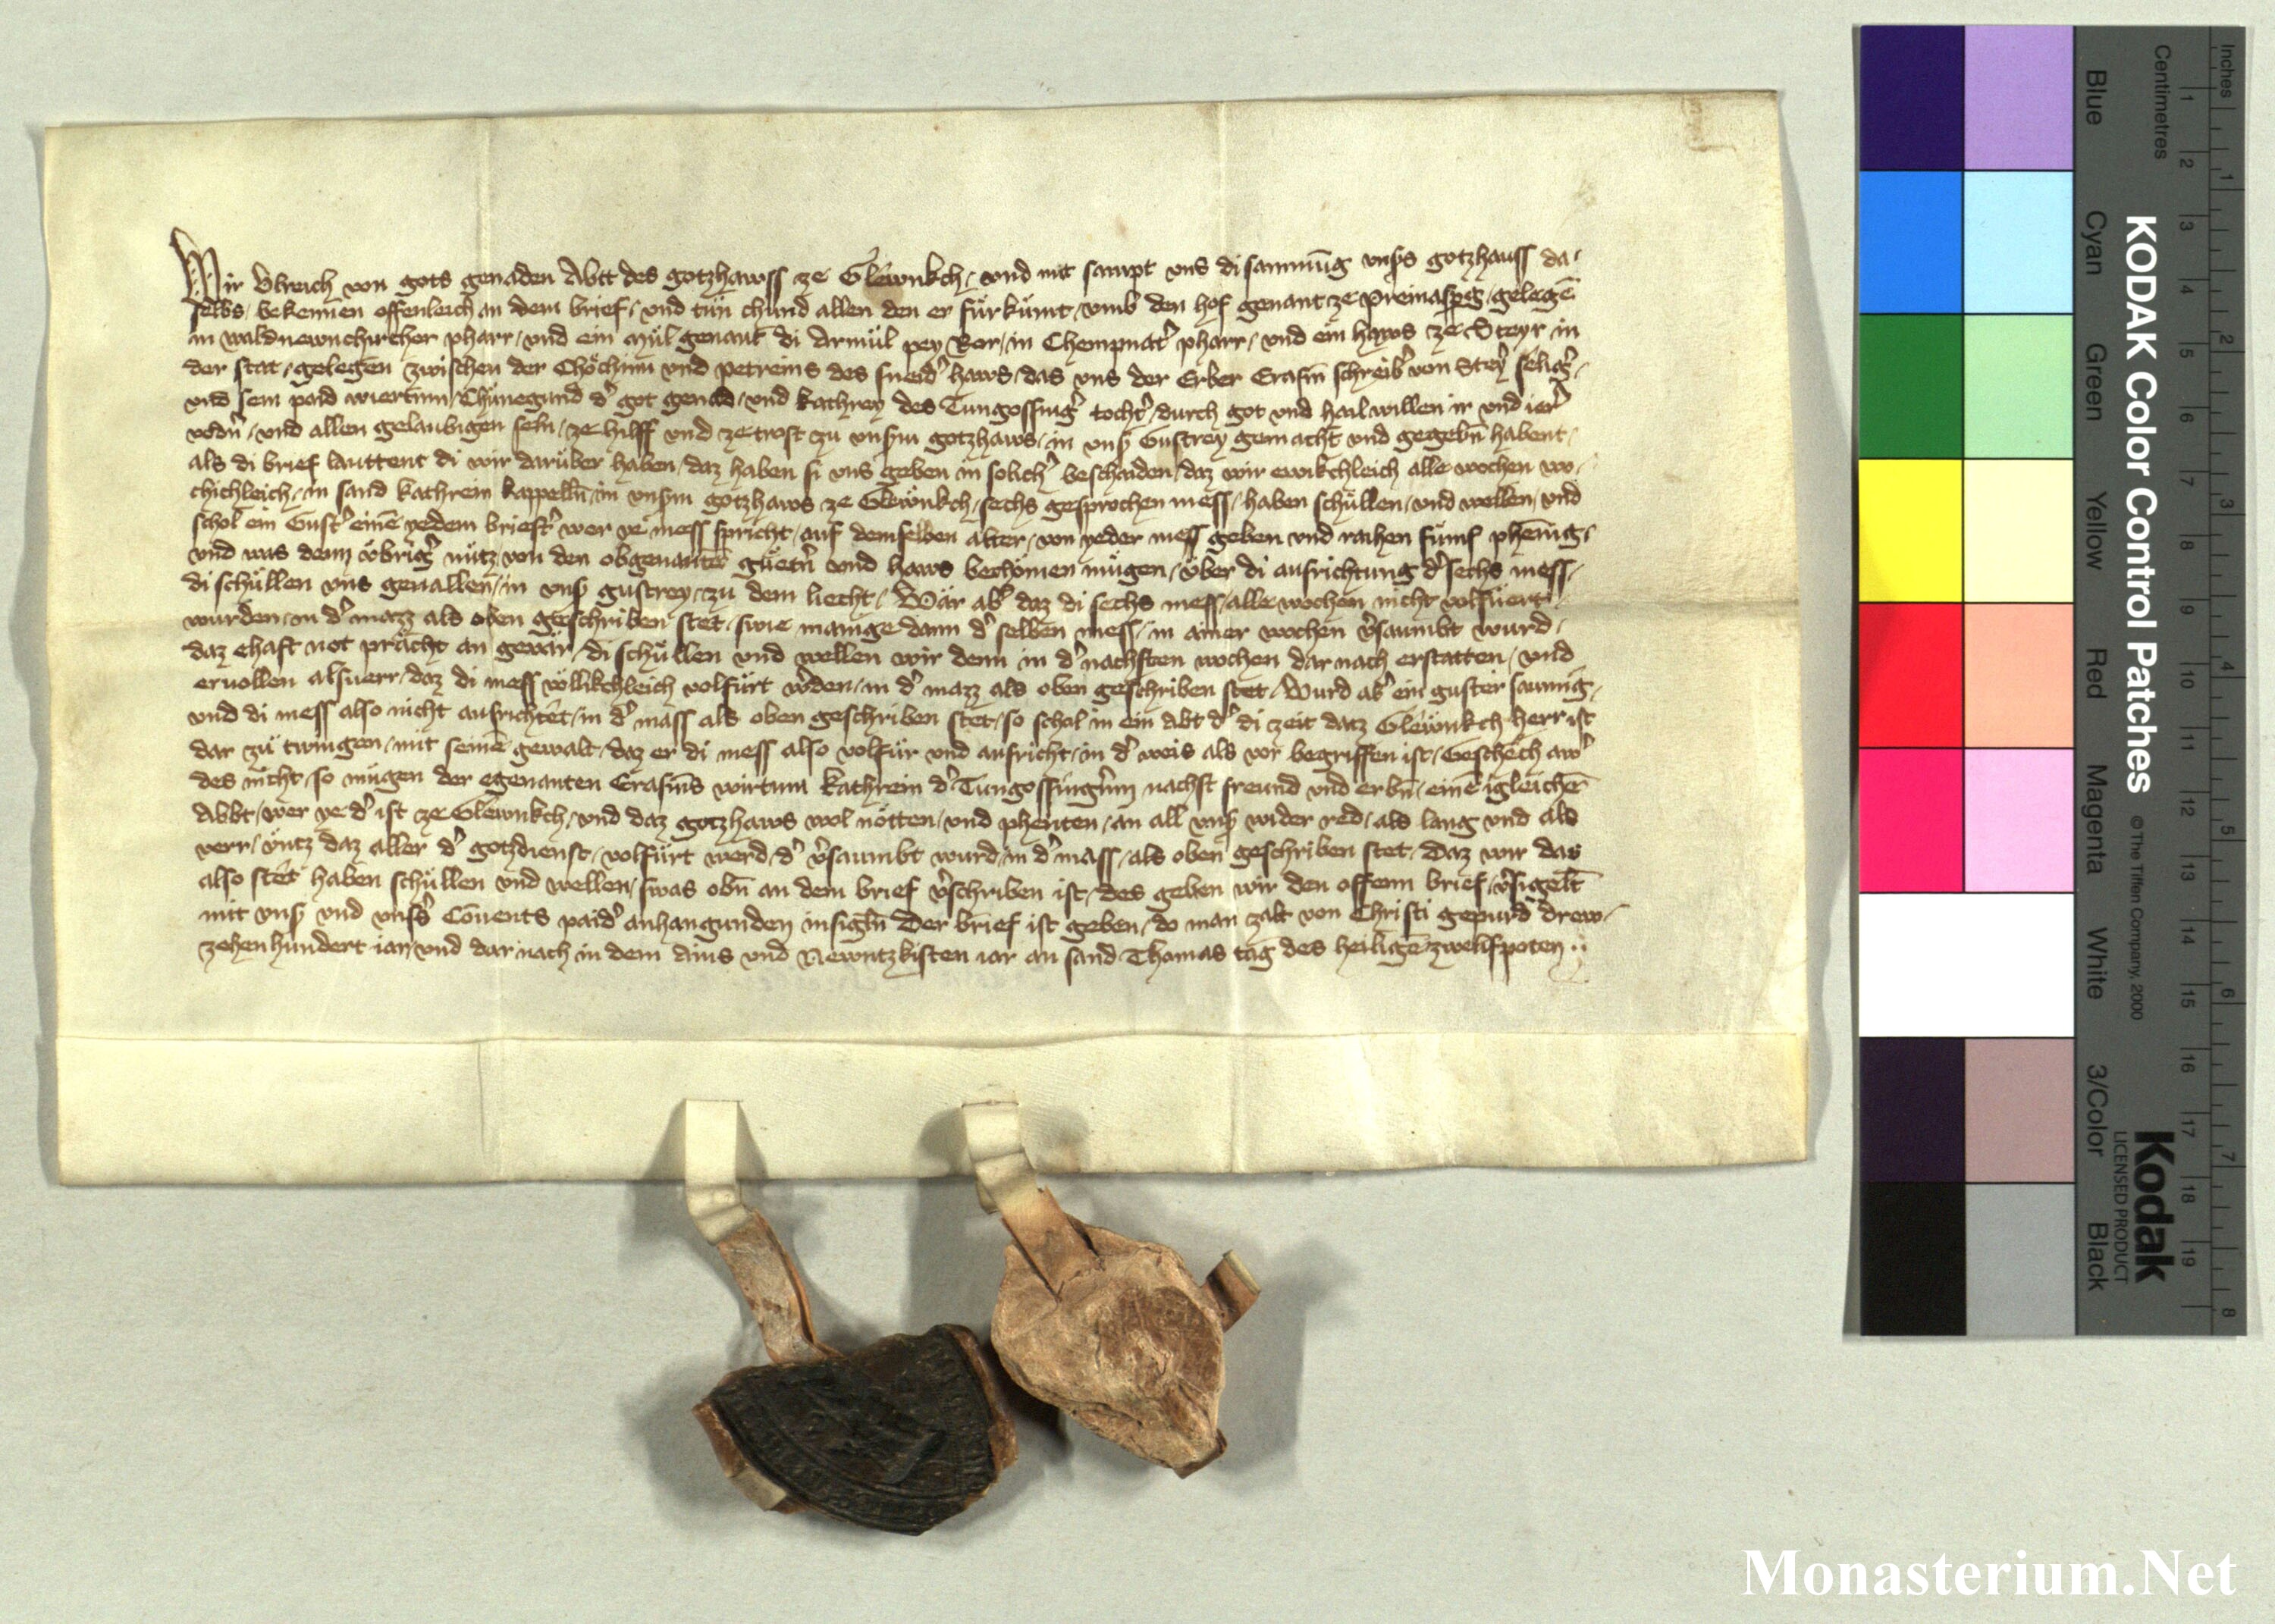 Wir Ulreich von gots genaden Abtt des gotzhawss ze Glewnkch / und mit sampt uns di samnu̅g unsʼs gotzhauss da/
selbs / bekennen offenleich an dem brief / und tun chund allen den er fürkümt / umb den hof genant ze Preinaspʼg / gelege̅
in waldnewnchircher pharr / und ein mül genant di Armül pey Ror / in Chempnatʼ pharr / und ein haws ze Steyr in
der stat / gelegen zwischen der Chöchinn und petreins des sneidʼ haws / das uns der Erber Erasm̅ schreibʼ von Steyʼ seligʼ /
und sein paid wiertinn / Chunegund dʼ got genad / und Kathrey des Tungossingʼ tochtʼ / durch got und hail willen ir und ierʼ
vodʼn / und allen gelaubigen seln / ze hilff und ze trost zu unsʼm gotzhaws / in unsʼ Gustrey gemacht und gegebn̅ habent /
als di brief lauttent di wir darüber haben / daz haben si uns geben in solichʼ beschaiden / daz wir ewikchleich alle wochen wo/
chichleich / in sand Kathrein kappelln̅ in unsʼm gotzhaws ze Glewnkch / sechs gesprochen mess / haben schüllen / und wellen / und
schol ein Gustʼ eine̅ yedem briestʼ wer ye mess spricht / auf demselben alter / von yeder mess geben und raihen fümf phen̅ig /
und was denn übrigʼ nütz von den obgenanten güetʼn und haws bechömen mügen / über di aufrichtung dʼ sechs mess /
di schüllen uns geuallen̅ / in unsʼ gustrey / zu dem liecht / Wär abʼ daz di sechs mess / alle wochen nicht volfüert /
wurden / in dʼ mazz als oben geschriben stet / swie manige dann dʼ selben mess / in ainer wochen vʼsaumbt wurd /
daz ehaft not prächt an geuär / di schüllen und wellen wir denn in dʼ nachsten wochen dar nach erstatten / und
eruollen alsuerr / daz di mess völlikchleich volfürt wʼden / in dʼ mazz als oben geschriben stet / Wurd abʼ ein guster saumig /
und di mess also nicht aufrichtet / in dʼ mass als oben geschriben stet / so schol in ein abt dʼ di zeit datz Glewnkch herr ist
dar zu twingen / mit seine̅ gewalt / daz er di mess also volfür und aufricht / in dʼ weis als vor begriffen ist / Geschech awʼ
des nicht / so mügen der egenanten Erasm̅s wirtinn Kathrein dʼ Tungossingʼinn nachst freund und erbn̅ / eine̅ igleiche̅
Abbt / wer ye dʼ ist ze Glewnkch / und daz gotzhaws wol nötten / und phenten / an all unsʼ wider red / als lang und als
verr / üntz daz aller dʼ gotzdienst / volfürt werd / dʼ vʼsaumbt wurd / in dʼ mass / als oben geschriben stet / Daz wir das
also stet haben schüllen und wellen / swas obn̅ an dem brief vʼschriben ist / des geben wir den offenn brief / vʼsigelt
mit unsʼ und unsʼs Co̅uents paidʼ anhangunden insigln̅ Der brief ist geben / do man zalt von Christi gepurd drew/
zehen hundert iar / und dar nach in dem ains und Newntzkisten iar an sand Thomas tag des heilige̅ zwelfpoten
Inches
Centimetres
KODAK Color Control Patches
© The Tiffen Company, 2000
Kodak
LICENSED PRODUCT
Blue
Cyan
Green
Yellow
Red
Magenta
White
3/Color
Black
1
2
3
4
5
6
7
8
9
10
11
12
13
14
15
16
17
18
19
1
2
3
4
5
6
7
8
Monasterium.Net